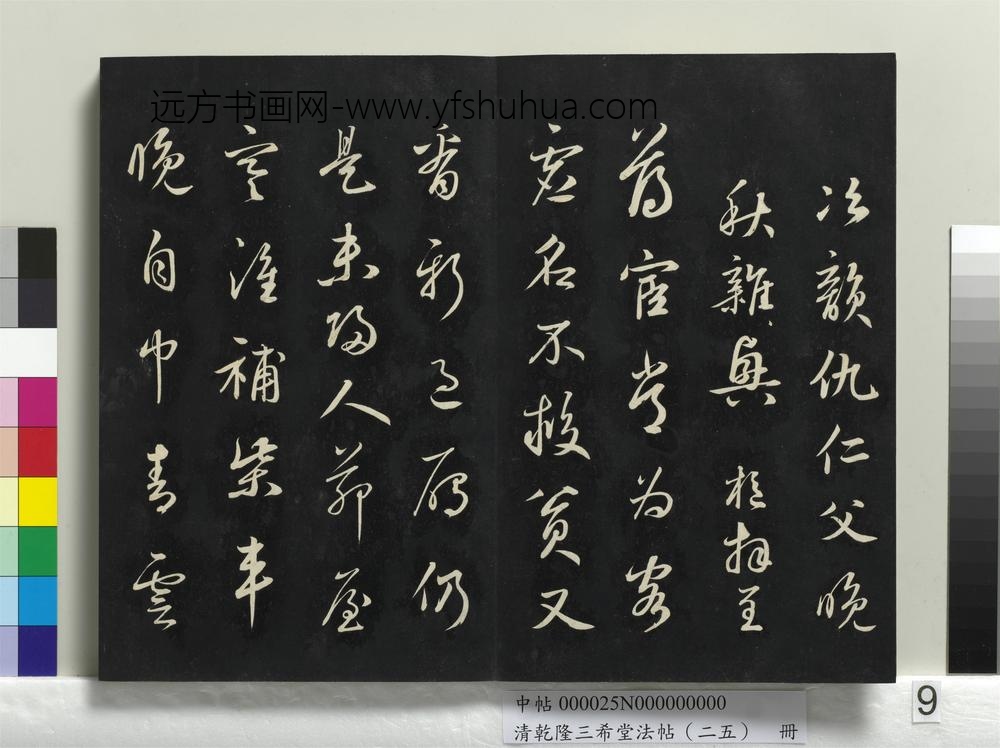 远方书画网-www.yfshuhua.com
次韻仇仁父晚
秋雜興 樞拜呈
薄宦常為客
虛名不救貧又
看新過雁仍
是未歸人茅屋
寒誰補柴車
晚自巾青雲
中帖 000025N000000000
清乾隆三希堂法帖(二五) 冊
9